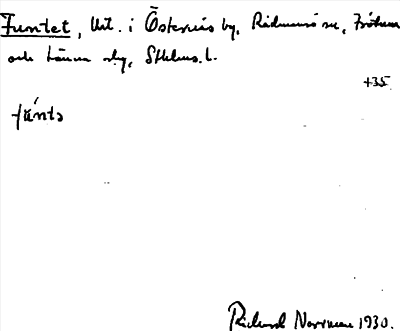 Funtet, Utl. i Östernäs by, Rådmansö sn, Frötuna
och Länna skg, Sthlms. l.
+35
fántə
Rickard Norrman 1930.